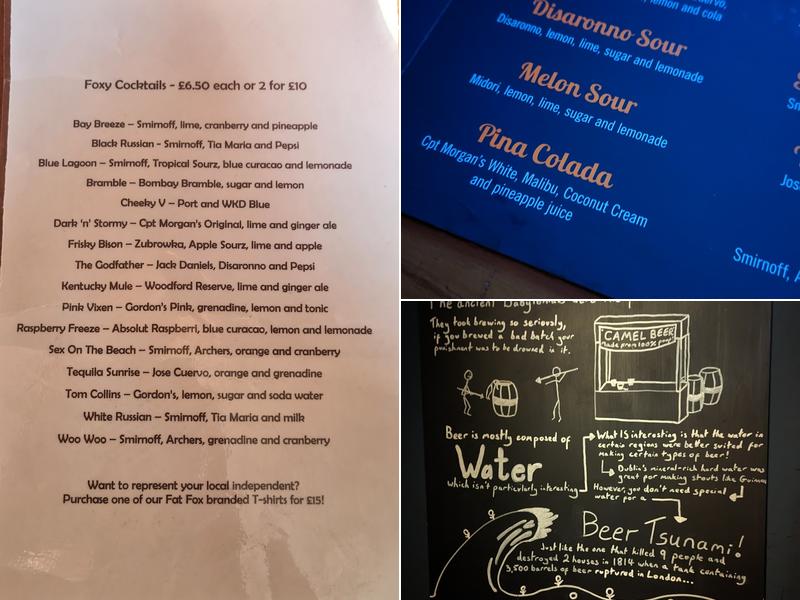 Foxy Cocktails - £6.50 each or 2 for £10
Bay Breeze – Smirnoff, lime, cranberry and pineapple
Black Russian - Smirnoff, Tia Maria and Pepsi
Blue Lagoon – Smirnoff, Tropical Sourz, blue curacao and lemonade
Bramble – Bombay Bramble, sugar and lemon
Cheeky V – Port and WKD Blue
Dark 'n' Stormy – Cpt Morgan's Original, lime and ginger ale
Frisky Bison – Zubrowka, Apple Sourz, lime and apple
The Godfather – Jack Daniels, Disaronno and Pepsi
Kentucky Mule – Woodford Reserve, lime and ginger ale
Pink Vixen – Gordon's Pink, grenadine, lemon and tonic
Raspberry Freeze – Absolut Raspberri, blue curacao, lemon and lemonade
Sex On The Beach – Smirnoff, Archers, orange and cranberry
Tequila Sunrise – Jose Cuervo, orange and grenadine
Tom Collins – Gordon's, lemon, sugar and soda water
White Russian – Smirnoff, Tia Maria and milk
Woo Woo – Smirnoff, Archers, grenadine and cranberry
Want to represent your local independent?
Purchase one of our Fat Fox branded T-shirts for £15!
lemon and cola
Disaronno Sour
Disaronno, lemon, lime, sugar and lemonade
Melon Sour
Midori, lemon, lime, sugar and lemonade
Pina Colada
Cpt Morgan's White, Malibu, Coconut Cream
and pineapple juice
Smirnoff,
The ancient Babylonians
They took brewing so seriously,
if you brewed a bad batch your
punishment was to be drowned in it.
CAMEL BEER
Made from 100%
Beer is mostly composed of
Water
which isn't particularly interesting
What IS interesting is that the water in
certain regions were better suited for
making certain types of beer!
Dublin's mineral-rich hard water was
great for making stouts like Guinness
However, you don't need special
water for a
Beer Tsunami!
Just like the one that killed 9 people and
destroyed 2 houses in 1814 when a tank containing
3,500 barrels of beer ruptured in London...